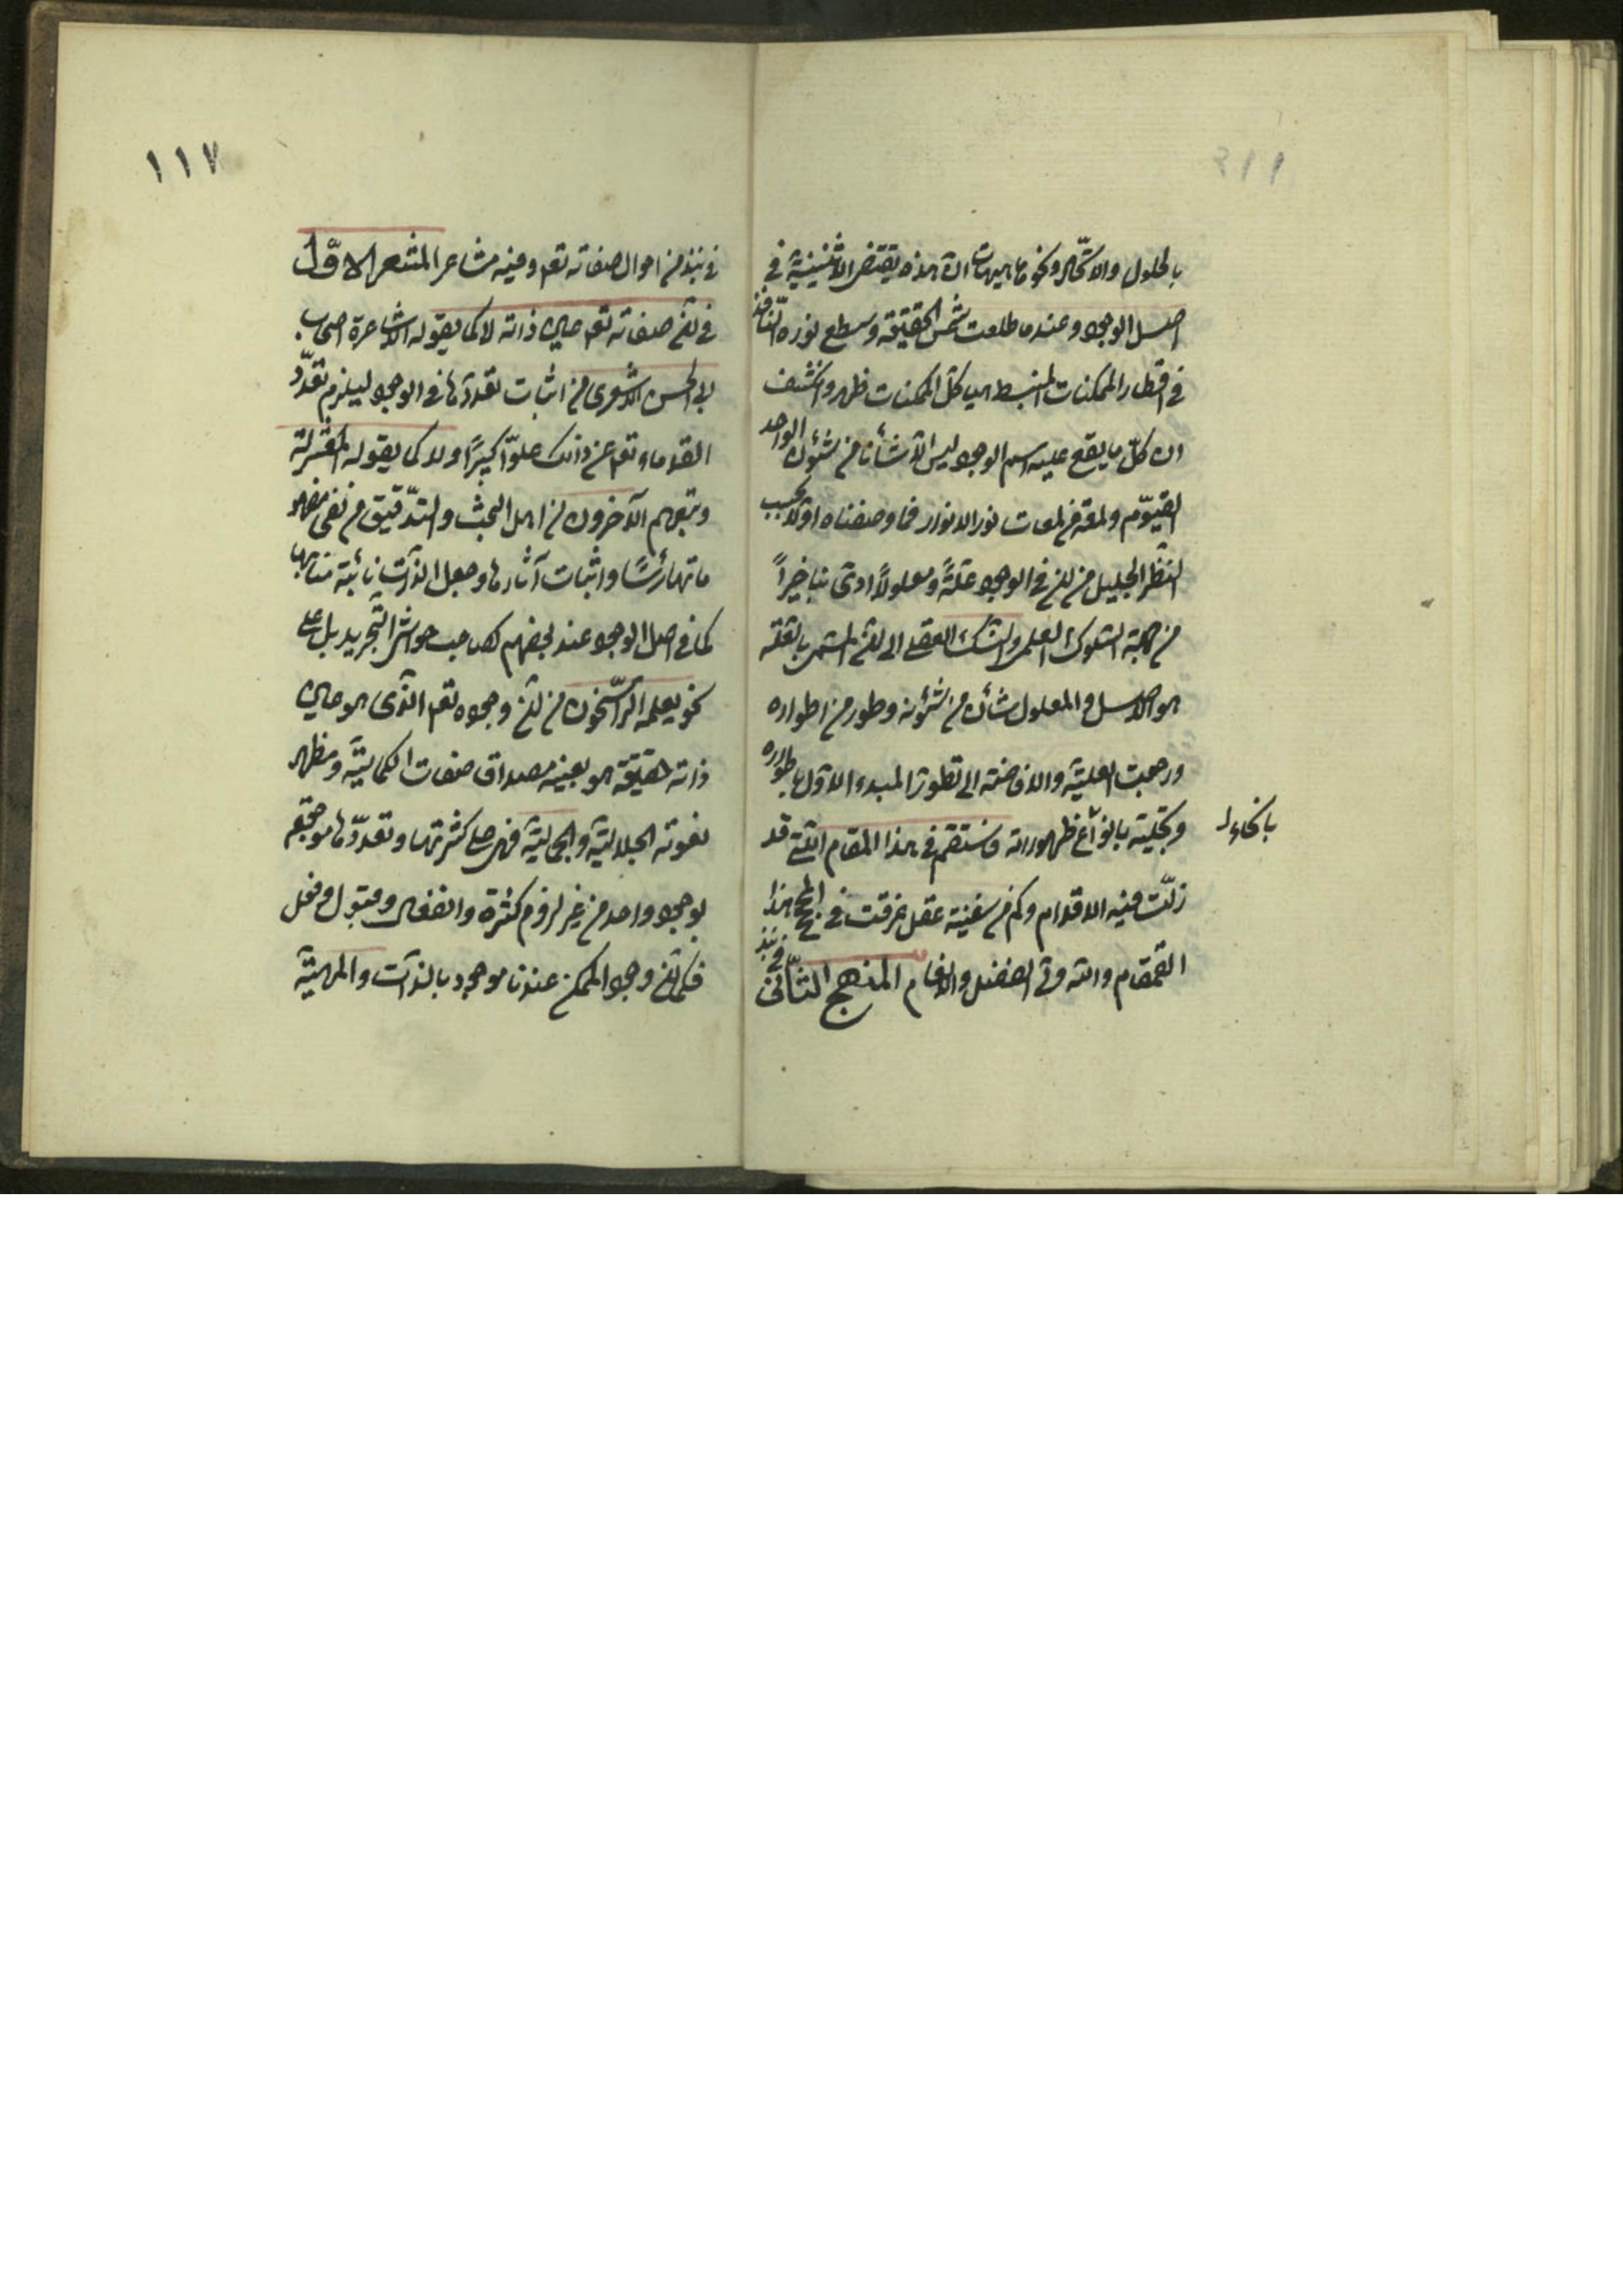 بالحلول والاتّحاد ونحوهما هيهات ان هذه يقتضى الاثنينيّة فى
اصل الوجود وعندما طلعت شمس الحقيقة وسطع نوره النّافذ
فى اقطار الممكنات المنبسط على هياكل الممكنات ظهر وانكشف
ان كلّ ما يقع عليه اسم الوجود ليس الّا شأنا من شئون الواحد
القيّوم ولمعة من لمعات نور الانوار فما وصفناه اوّلا بحسب
النّظر الجليل من ان فى الوجود علّة ومعلولاً ادّى بنا اخيراً
من جهة السّلوك العلمى والنّسك العقلى الى ان المسمّى بالعلّة
هو الاصل والمعلول شأن من شئونه وطور من اطواره
ورجعت العليّة والافاضة الى تطوّر المبدء الاوّل باطواره
وتجلّيه بانواع ظهوراته فاستقم فى هذا المقام الّذى قد
بانحاء
زلّت فيه الاقدام وكم من سفينة عقل غرقت فى لجج هذا
القمقام والله ولىّ الفضل والانعام المنهج الثّانى فى نبذ
١١٧
فى نبذ من احوال صفاته تعم وفيه مشاعر المشعر الاوّل
فى انّ صفاته تعم عين ذاته لا كما يقوله الاشاعرة اصحاب
ابى الحسن الاشعرى من اثبات تعدّدها فى الوجود ليلزم تعدّد
القدماء تعم عن ذلك علوّا كبيرًا ولا كما يقوله المعتزلة
وتبعهم الآخرون من اهل البحث والتّدقيق من نفى مفهو
ماتها رأسًا واثبات آثارها وجعل الذّات نائبة منابها
كما فى اصل الوجود عند بعضهم كصاحب حواشى التّجريد بل على
نحو يعلمه الرّاسخون من انّ وجوده تعم الّذى هو عين
ذاته حقيقة هو بعينه مصداق صفات الكماليّة ومظهر
نعوته الجلاليّة والجماليّة فهى على كثرتها وتعدّدها موجودة
بوجود واحد من غير لزوم كثرة وانفعال وقبول وفعل
فكما انّ وجود الممكن عندنا موجود بالذّات والمهيّة